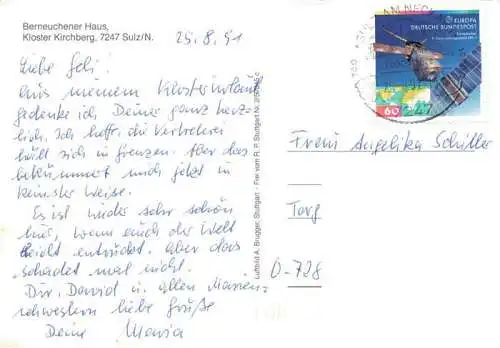 Berneuchener Haus,
Kloster Kirchberg, 7247 Sulz/N.
25.8.91
Liebe Geli!
Aus meinem Klosterurlaub
gedenke ich Deiner ganz herz-
lich. Ich hoffe, die Vertreterei
hält sich in Grenzen. Aber das
bekümmert mich jetzt in
keinster Weise.
Es ist wieder sehr schön
hier, wenn auch der Welt
leicht entrückt, aber das
schadet mal nicht.
Dir, David u. allen Marien-
schwestern liebe Grüße
Deine Maria
Luftbild A. Brugger, Stuttgart - Frei vom R. P. Stuttgart Nr.
EUROPA
DEUTSCHE BUNDESPOST
60
247
Frau Angelika Schiller
Torg
O-728